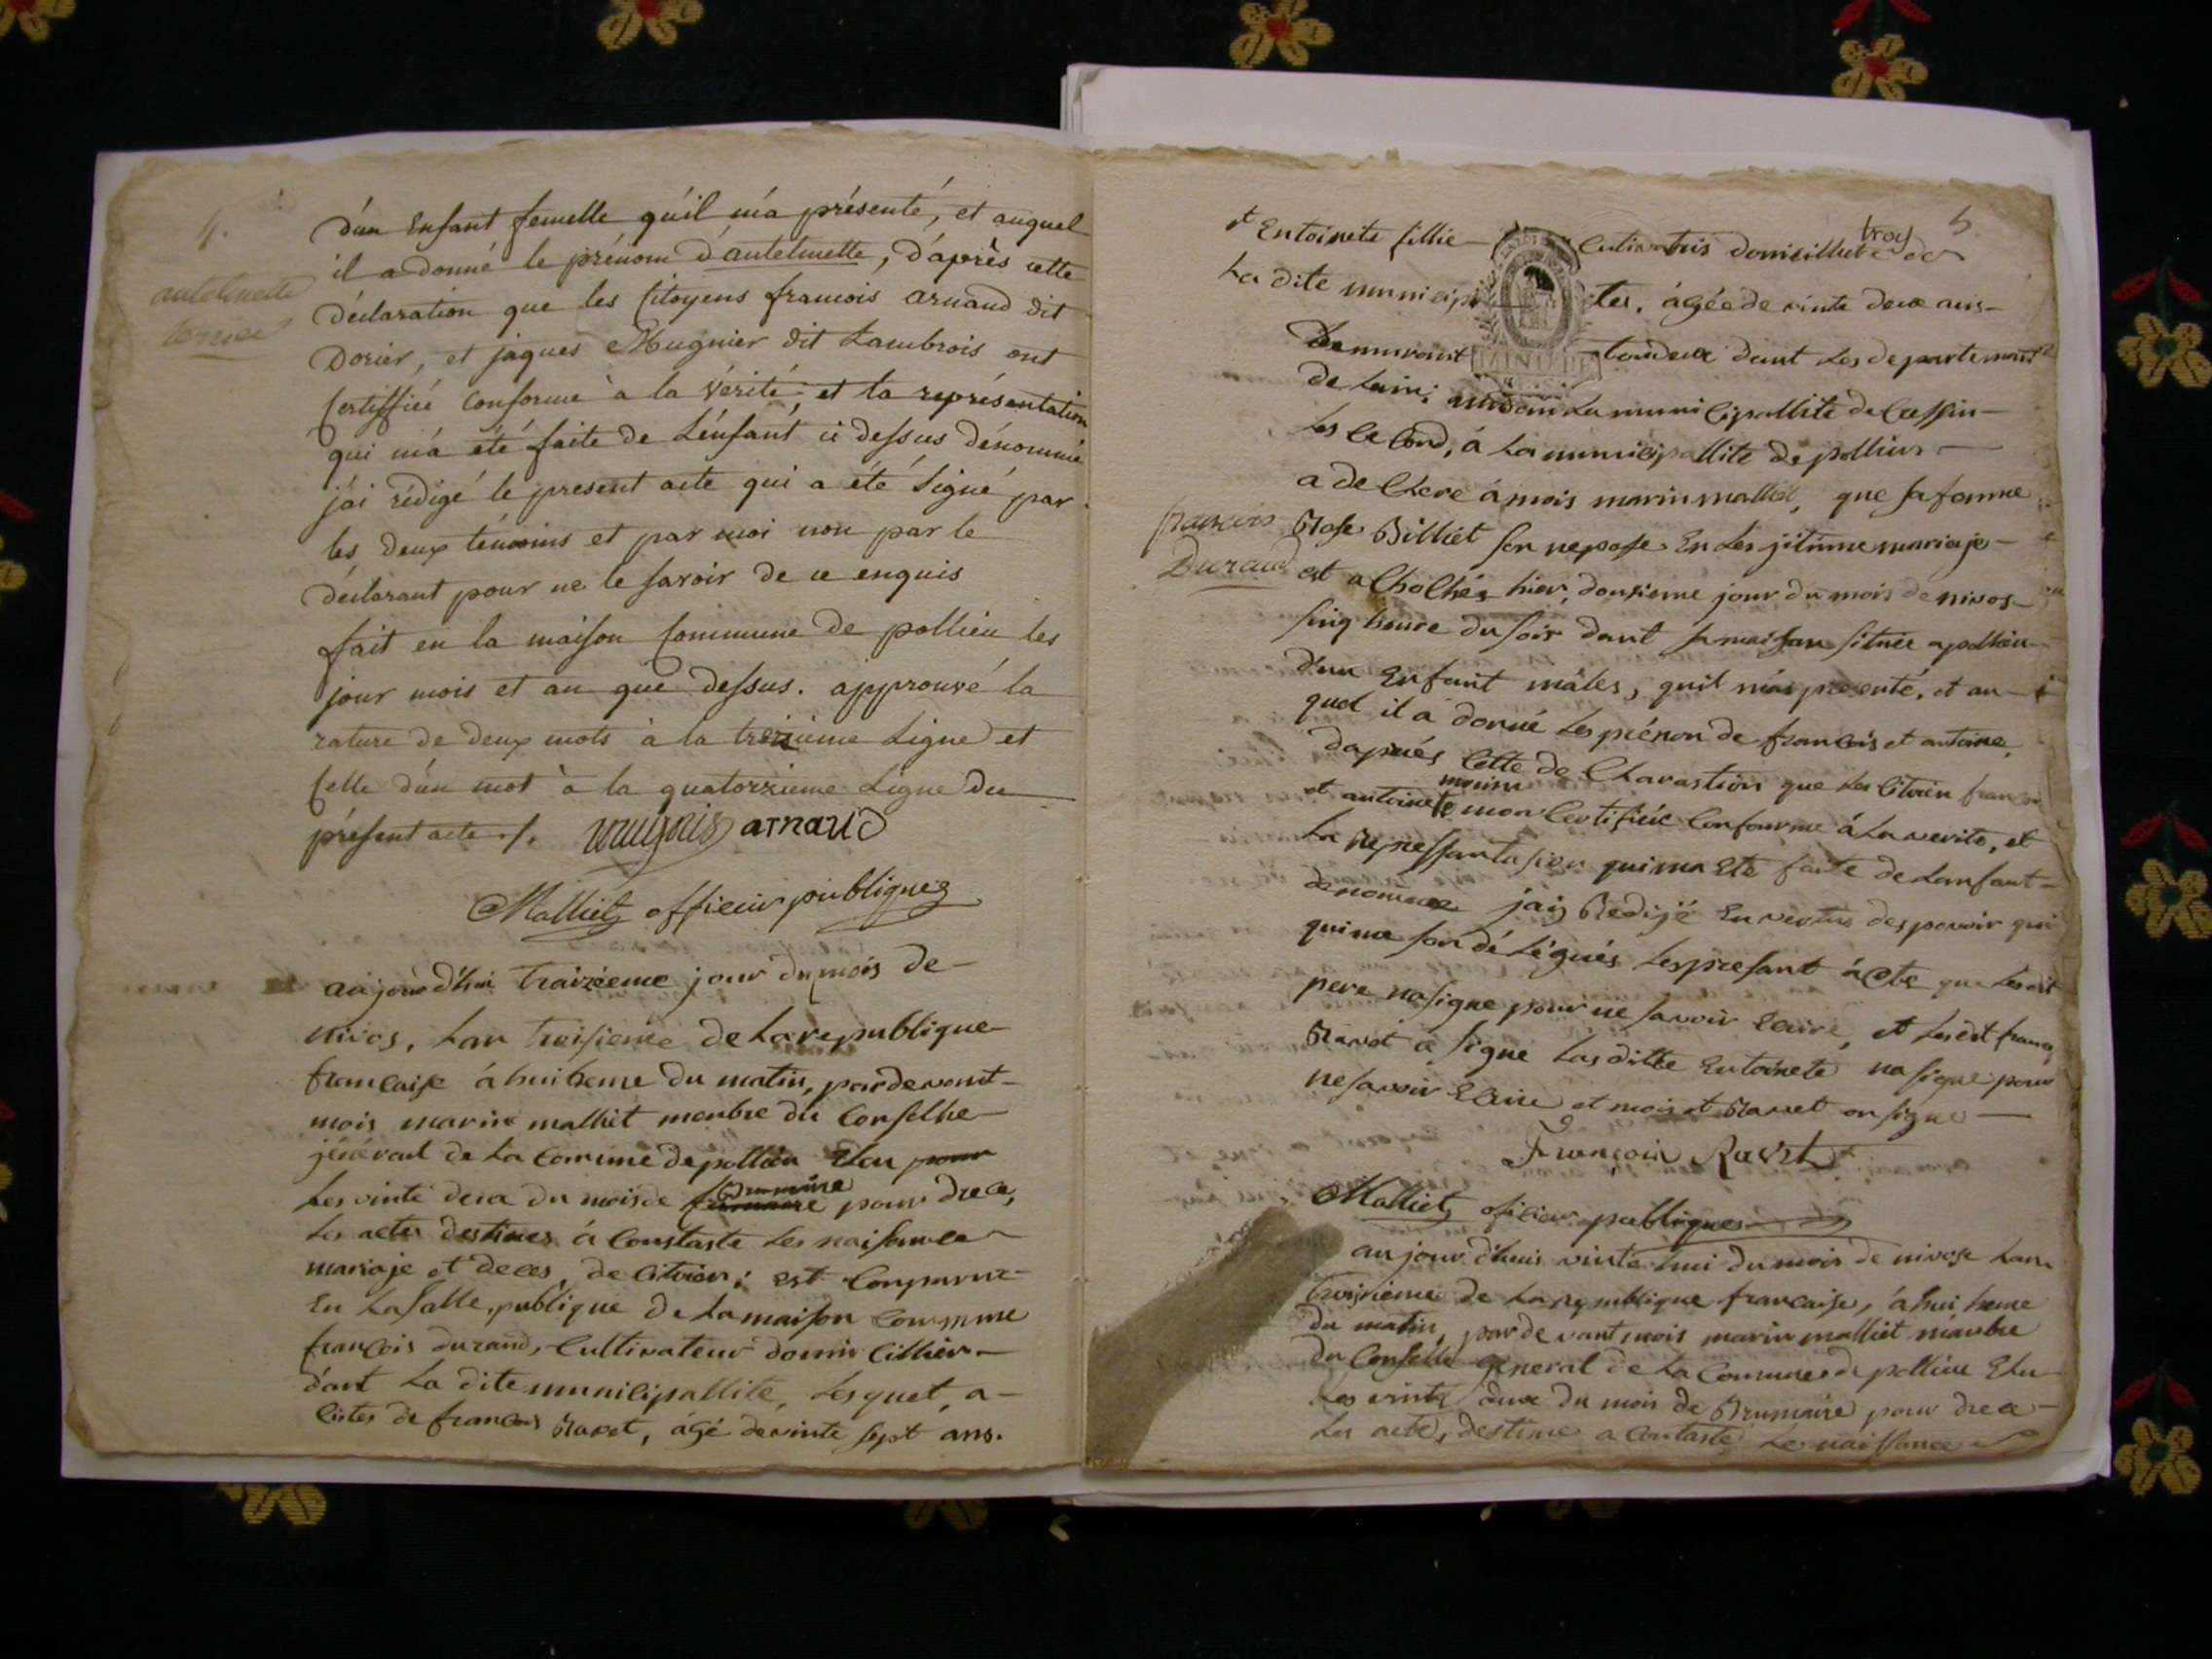 4.
d'un Enfant femelle qu'il m'a présenté, et auquel
il a donné le prénom d'antelmette, d'après cette
antelmette
déclaration que les Citoyens francois arnaud dit
Dorier, et jaques Mugnier dit Lambrois ont
Certiffié Conforme à la Vérité, et la représentation
qui m'a été faite de L'enfant ci dessus dénommé
j'ai rédigé le present acte qui a été Signé par
les deux témoins et par moi non par le
déclarant pour ne le savoir de ce enquis
fait en la maison Commune de pollieu les
jour mois et an que dessus. approuvé la
rature de deux mots à la treizieme Ligne et
Celle d'un mot à la quatorzieme Ligne du
présent acte ./. arnaud
Malliet officier publique
aujourd'hui traizieme jour du mois de
nivos, Lan troisieme de La republique
francaise á hui heure du matin, par devant
mois marin malliet menbre du Conselhe
jénéral de La Comune de pollieu Elu pour
Les vinte deux du mois de Brumaire pour drece,
Les actes destines á Constaste Les naisance
mariaje et deces, de Citoien; est Conparue
En La salle, publique de La maison Commune
francois durand, Cultivateur domicillier
dant La dite municipallite, Lesquet, a
listes de francois Ravet, agé de vinte sept ans.
5
et Entoinete fillie troy domicilliet de
La dite municip tes, agée de vinte deux ans
Demurant dant Les departemant
de Lain; La municipallite de Cussin
Les Le Cond, á La municipallité de pollieu
a de Clere á mois marin malliet, que sa fame
francois
Durand
Rose Billiet son nepose En Lesjitime mariaje
est a Cholhes hier, douxieme jour du mois de nivos
sinq heure du soir dant sa maison située a pollieu
d'un Enfant mâles, quil má présenté, et au
quel il a donné Les prénon de francois et antoine,
dapriés Cette de Charastion que Les Citoien francois
et antoinete mon Certifiéé Confourme á La verite, et
La Repressantasion qui ma Eté faite de Lanfant
denomme jais Redijé En vertus des pouvoir qui
qui me son délégués Les presant acte que Ledit
pere na signe pour ne savoir Ecrire, et Ledit francois
Ravet a signe Las ditte Entoinete na signe pour
ne savoir Ecrire et mois et Ravet on signe
François Ravet
Malliet oficier publique
au jour d'huis vinte hui du mois de nivose Lan
troisieme de La republique francaise, á hui heure
du matin, par de vant mois marin malliet manbre
du Conselhe General de La Comune de pollieu Elu
Les vinte deux du mois de Brumaire pour drece
Les acte, destine a Contaste Le naissance